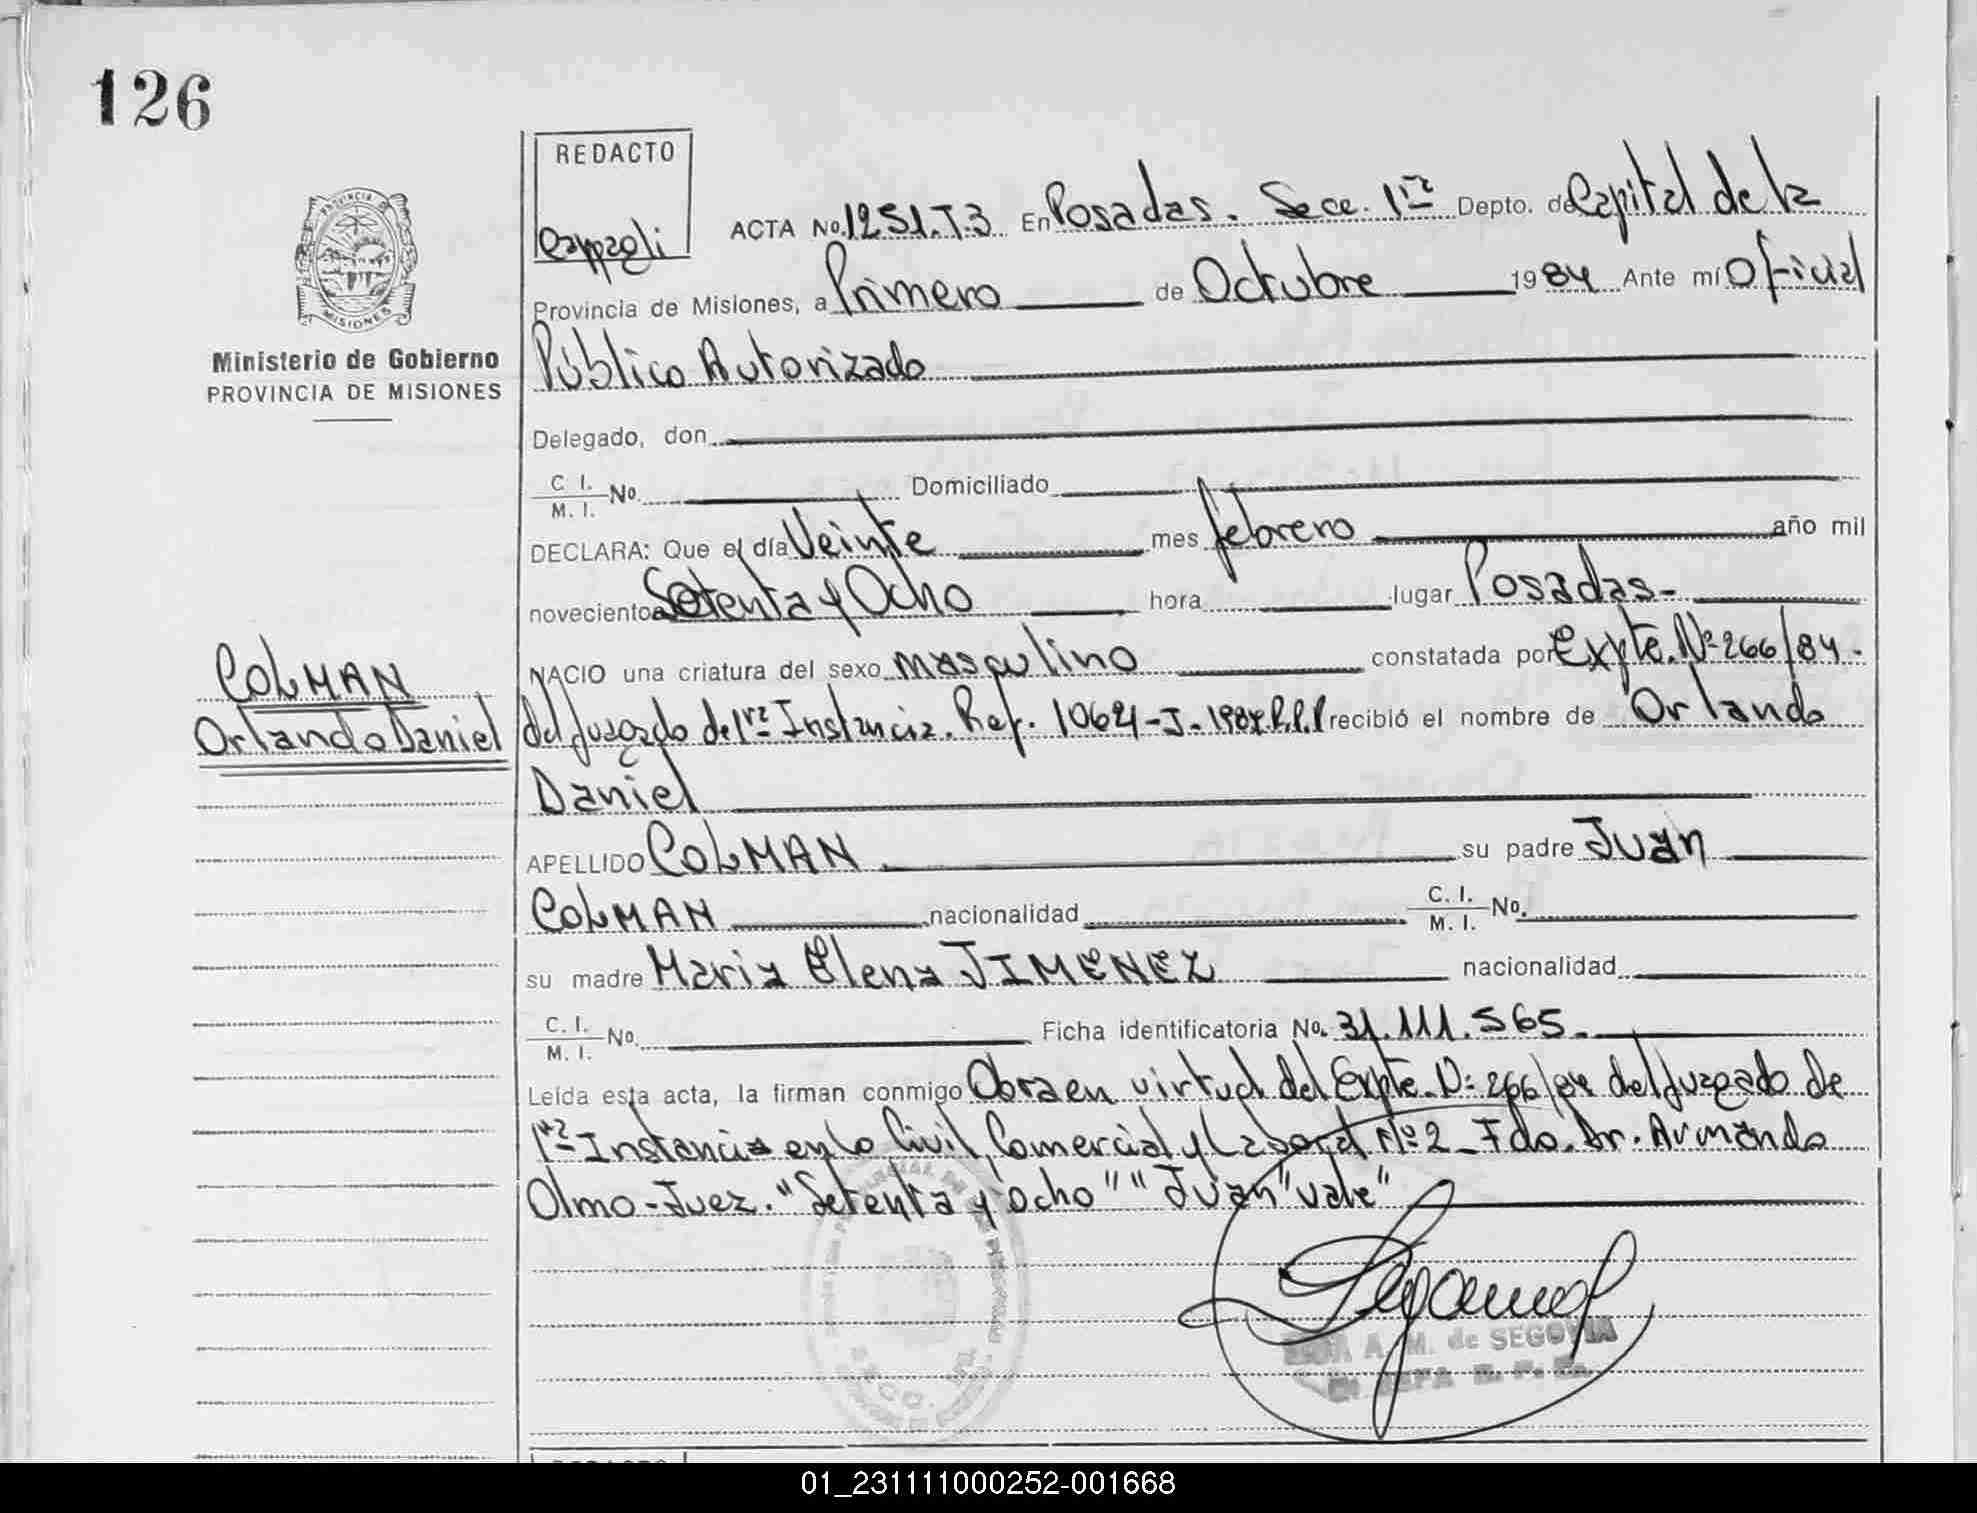 126
REDACTO
Cappagli
ACTA No. 1251.T.3 En Posadas. Secc. 1ra Depto. de Capital de la
Provincia de Misiones, a Primero de Octubre 1984 Ante mí Oficial
Público Autorizado
Delegado, don
C. I. / M. I. No. Domiciliado
DECLARA: Que el día Veinte mes febrero año mil
novecientos Setenta y Ocho hora lugar Posadas-
NACIO una criatura del sexo masculino constatada por Expte. Nº 266/84.
del Juzgado de 1ra Instancia. Ref. 10621-J-1984 R.P.P recibió el nombre de Orlando
Daniel
APELLIDO COLMAN su padre Juan
COLMAN nacionalidad C. I. / M. I. No.
su madre Maria Elena JIMENEZ nacionalidad
C. I. / M. I. No. Ficha identificatoria No. 31.111.565.
Leída esta acta, la firman conmigo Obra en virtud del Expte. Nº 266/84 del Juzgado de
1ra Instancia en lo Civil, Comercial y Laboral Nº 2_ Fdo. Dr. Armando
Olmo-Juez. "Setenta y Ocho" "Juan" vale"
A. M. de SEGOVIA
PROVINCIA DE
MISIONES
Ministerio de Gobierno
PROVINCIA DE MISIONES
COLMAN
Orlando Daniel
01_231111000252-001668